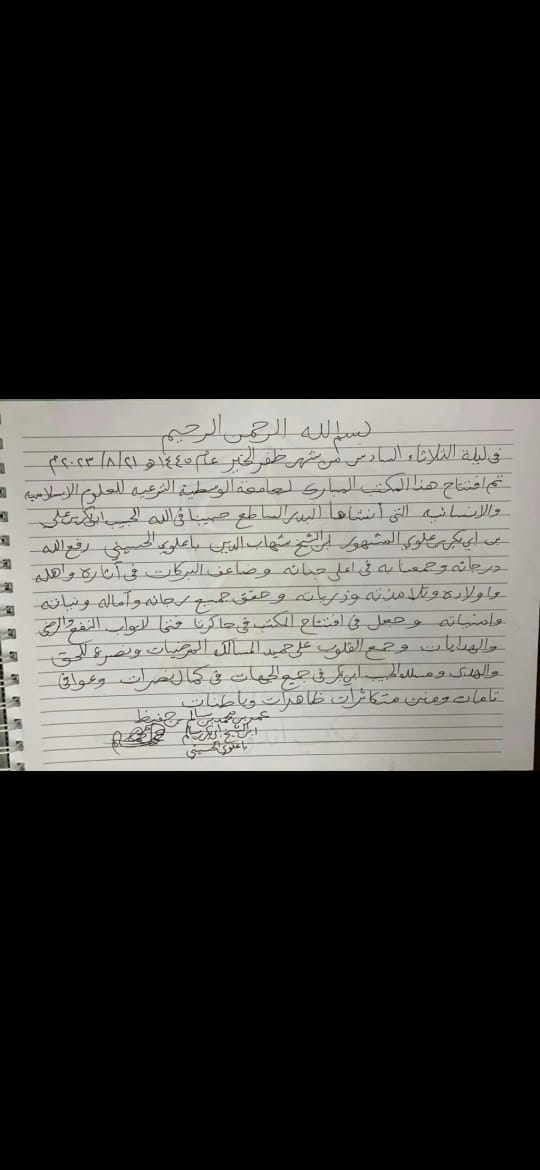 بسم الله الرحمن الرحيم
في ليلة الثلاثاء السادس من شهر ظفر الخير عام ١٤٤٥ هـ ٢١/٨/٢٠٢٣م
تم افتتاح هذا المكتب المبارك لجامعة الوسطية الشرعيه للعلوم الاسلاميه
والإنسانيه التي أنشأها البدر الساطع حبيبنا في الله الحبيب ابوبكر بن علي
بن ابي بكر بن علوي المشهور ابن الشيخ شهاب الدين باعلوي الحسيني رفع الله
درجاته وجمعنا به في اعلى جناته وضاعف البركات في آثاره واهله
واولاده وتلامذته وذرياته وحقق جميع رجائه وآماله ونياته
وامنياته وجعل في افتتاح المكتب في جاكرتا فتحا لابواب النفع
والهدايات وجمع القلوب على حميد المسالك المرضيات ونصرة للحق
والهدى ومسلك الحبيب ابي بكر في جميع الجهات في كمال نصرات وعوافي
تامات ومنن متكاثرات ظاهرات وباطنات
عمر بن محمد بن سالم بن حفيظ
ابن الشيخ ابي بكر بن سالم
باعلوي الحسيني